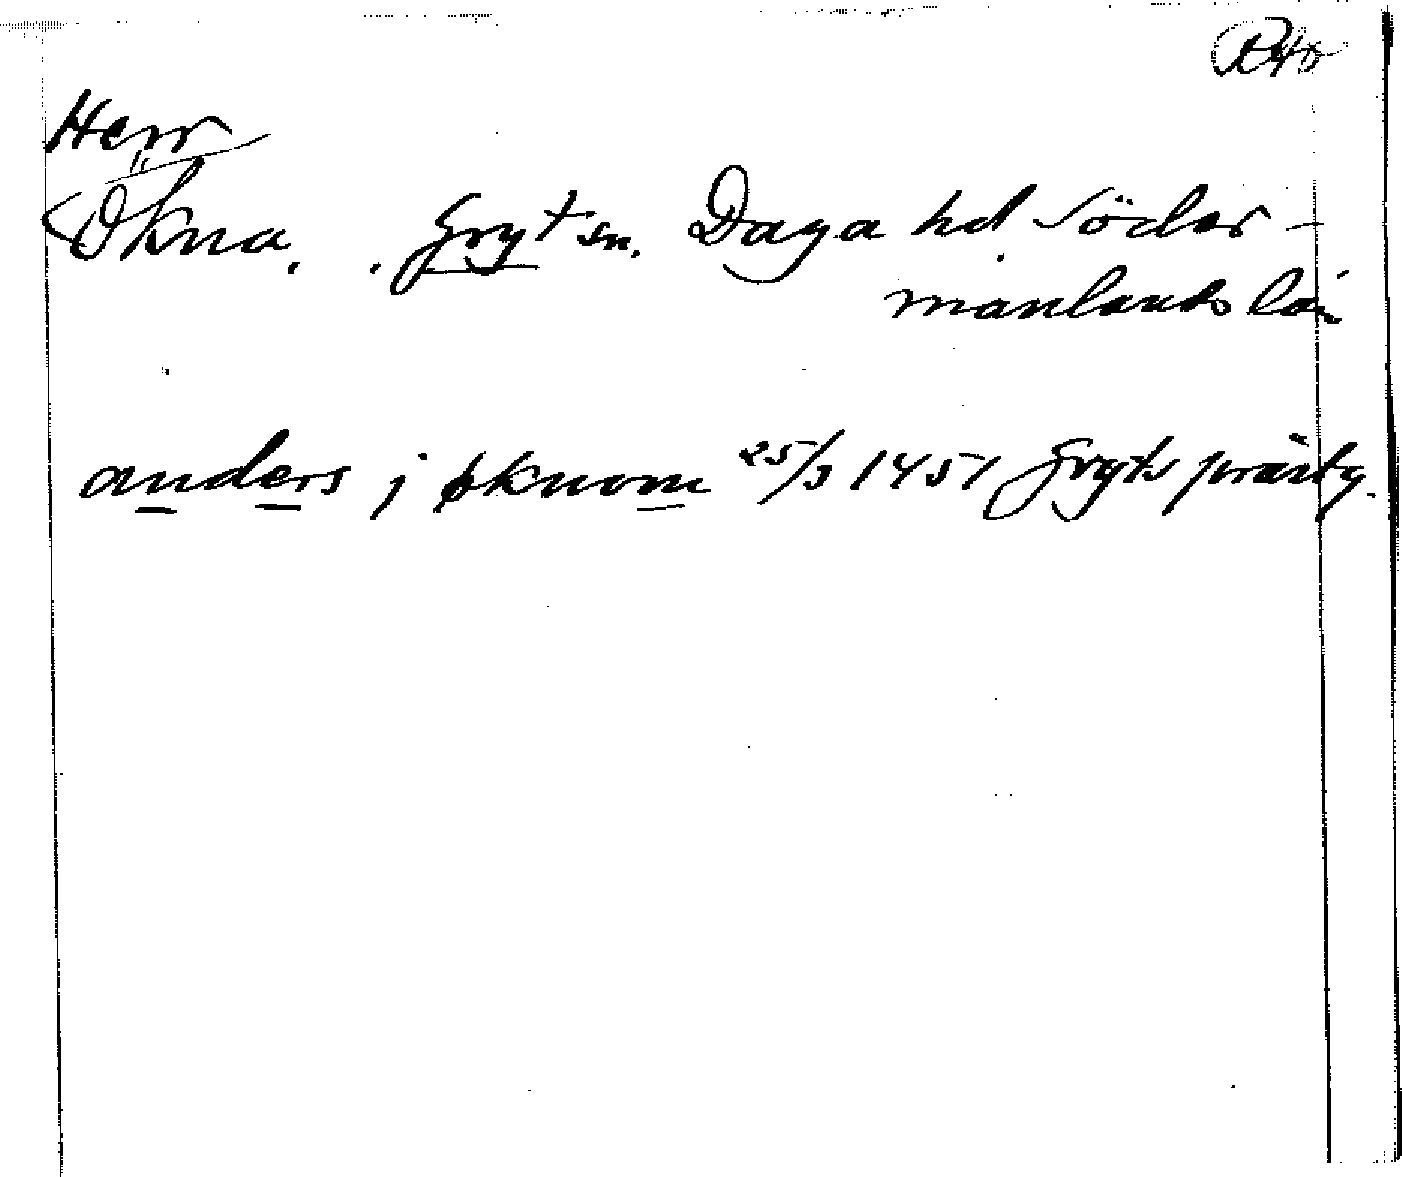 Herr
Ökna. . Gryt sn. Daga hd. Söder-
manlands län
anders j øknom 25/3 1451 Gryts prästg.